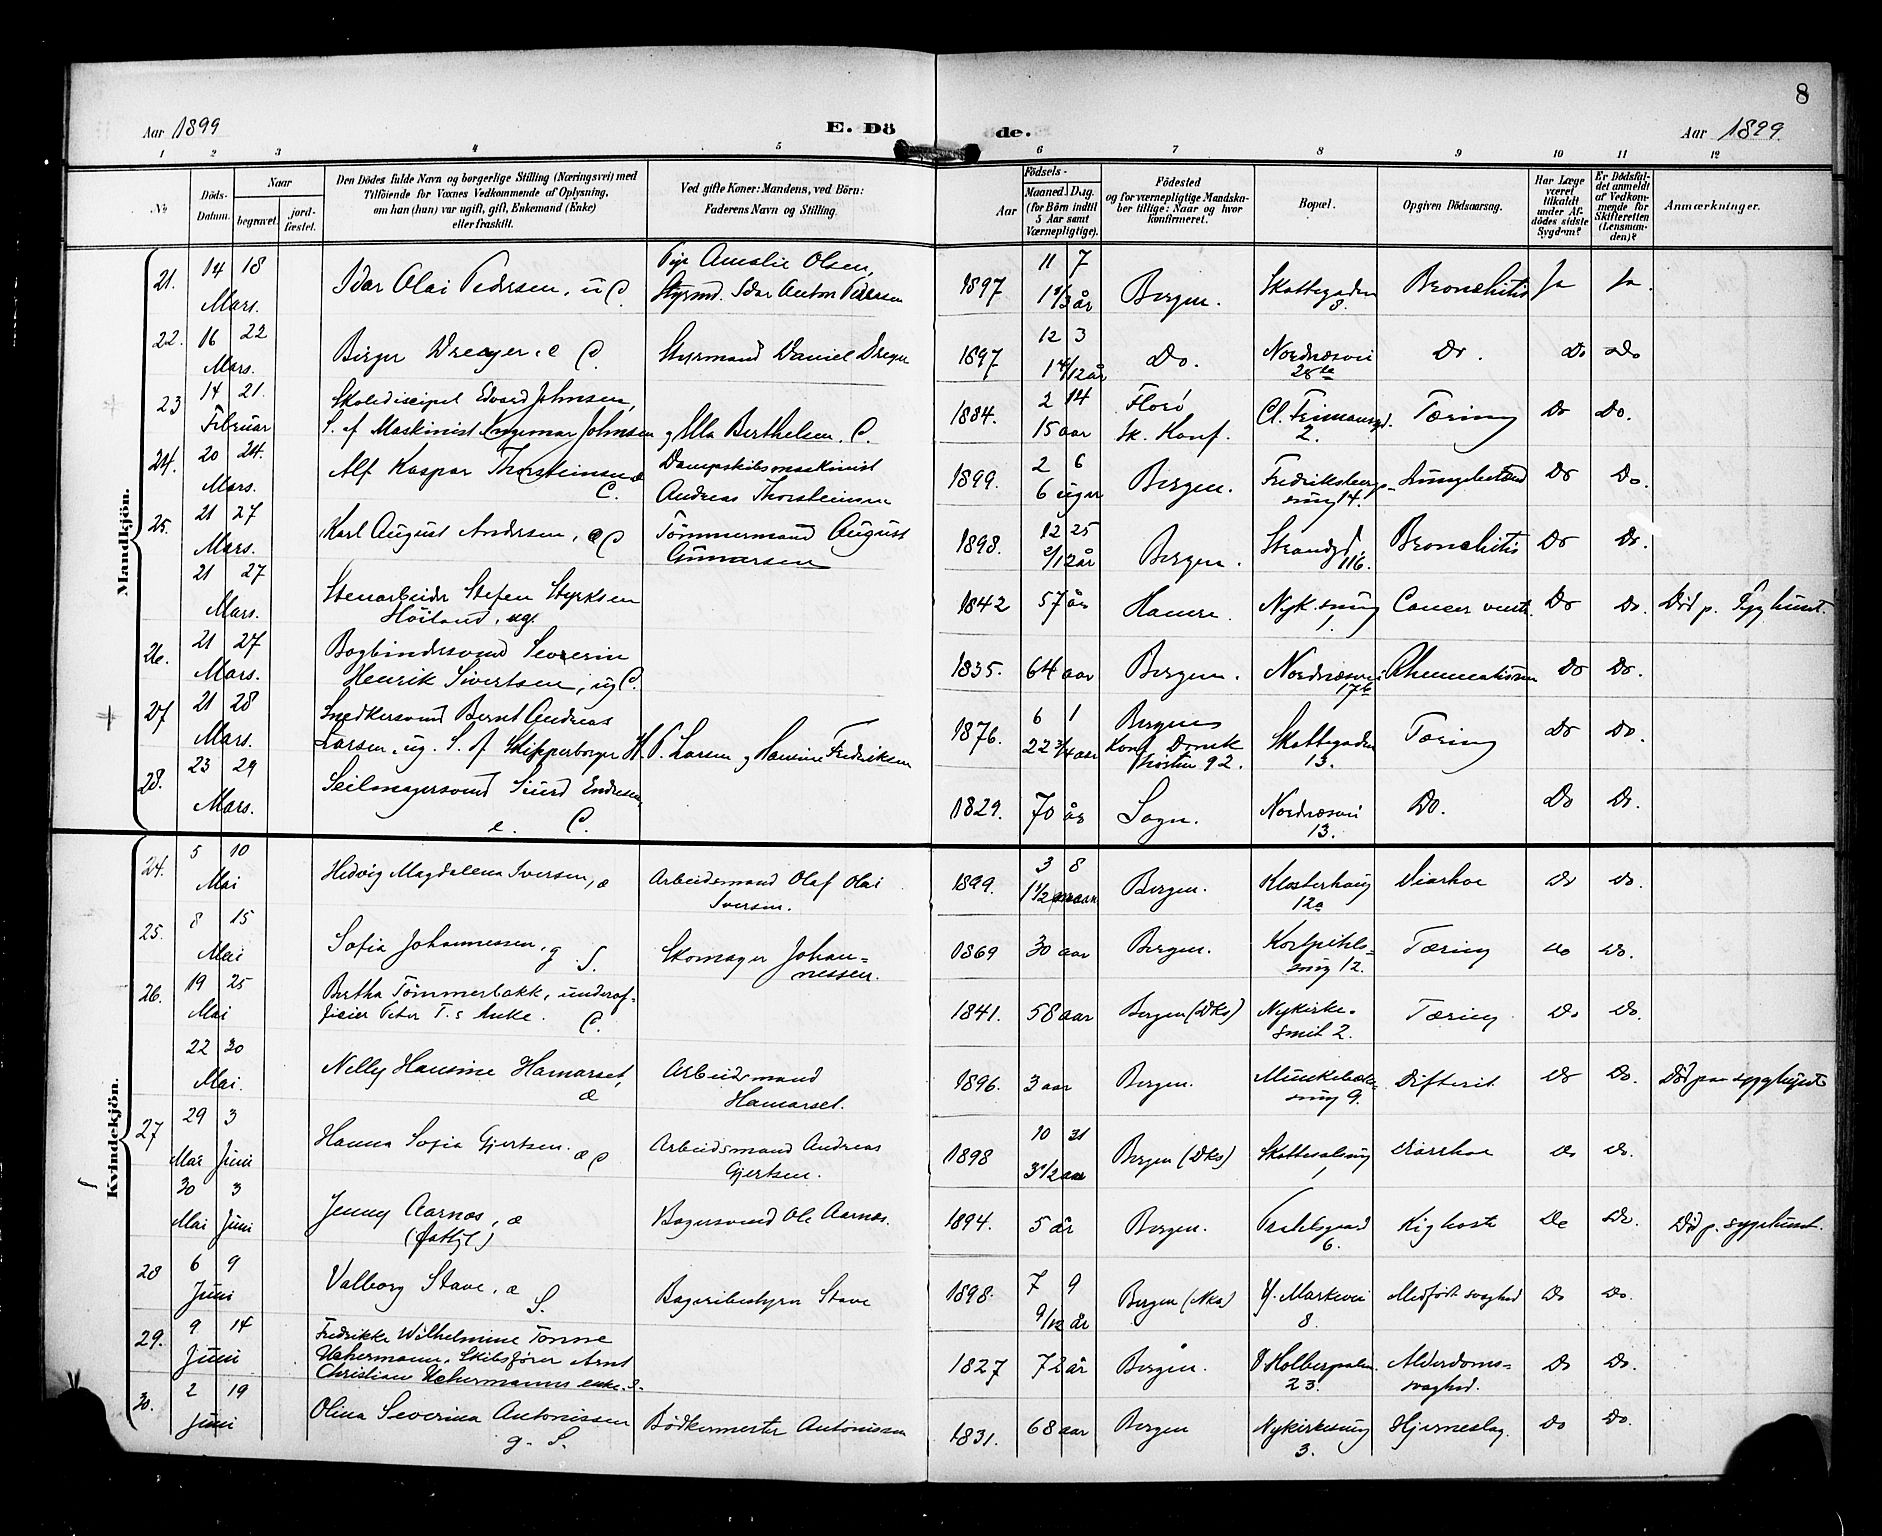 8
Aar 1899
E. Dö
de.
Aar 1899.
1 2 3 4 5 6 7 8 9 10 11 12
№
Döds-
Datum.
Naar
begravet.
jord-
fæstet.
Den Dödes fulde Navn og borgerlige Stilling (Næringsvei) med
Tilföiende for Voxnes Vedkommende af Oplysning,
om han (hun) var ugift, gift, Enkemand (Enke)
eller fraskilt.
Ved gifte Koner: Mandens, ved Börn:
Faderens Navn og Stilling.
Födsels-
Aar
Maaned. Dag.
(for Börn indtil
5 Aar samt
Værnepligtige).
Födested
og for værnepligtige Mandska-
ber tillige: Naar og hvor
konfirmeret.
Bopæl.
Opgiven Dödsaarsag.
Har Læge
været
tilkaldt
under Af-
dödes sidste
Sygdom?
Er Dödsfal-
det anmeldt
af Vedkom-
mende for
Skifteretten
(Lensman-
den)?
Anmærkninger.
Mandkjön.
21. 14 18 Pige Amalie Olsen, 11 7
Mars. Idar Olai Pedersen, u C. Styrmd. Idar Anton Pedersen 1897 Bergen. Skottegaden Bronchitis Ja Ja
8.
22. 16 22 12 3
Mars. Birger Dreyer. e C. Styrmand Daniel Dreyer 1897 1 4/12 år Do. Nordnæsvei Do. Do Do
23 14 21. Skolediscipel Edvard Johnsen, 1884. 2 14 Florö Cl. Frimansgd. Tæring Do Do.
Februar S. af Maskinist Ingemar Johnsen og Ella Berthelsen. C. 15 aar Ik. Konf. 2.
24. 20 24. Alf Kaspar Thorsteinsen Dampskibsmaskinist 2 6
Mars. C. Andreas Thorsteinsen 1899. 6 uger Bergen. Fredriksberg- Lungebetænd Do Do.
smug 14.
25. 21 27 Karl August Andersen, æ C Tömmermand August 1898. 12 25 Strandgd. Bronchitis Do Do.
Mars. Gunnarsen 2/12 år Bergen. 116.
21 27 Stenarbeider Stefen Styrksen 1842 57 år Hamre. Nyk. smug Cancer vent. Do Do. Död p. Sygehuset.
Mars. Höiland, ug. 1.
26. 21 27 Bogbindersvend Severin
Mars. Henrik Sivertsen, ug C. 1835. 64 aar Bergen. Nordnæsvei Rheumatisme Do Do.
27 21 28 Snedkersvend Bernt Andreas 6 1 Bergens
Mars. Larsen, ug. S. af Skipperborger H. P. Larsen og Hansine Fredriksen 1876. 22 3/4 aar Konf. Domk Skottegaden Tæring Do Do.
hösten 92. 13.
28. 23 29 Seilmagersvend Siurd Endresen
Mars. e. C. 1829. 70 år Sogn. Nordnæsvei Do. Do Do.
13.
Kvindekjön.
24. 5 10 3 8
Mai Hedvig Magdalena Iversen, æ Arbeidsmand Olaf Olai 1899. 1 1/2 Bergen. Klosterhaug Diarhoe Do Do.
Iversen. 12a
25. 8 15
Mai Sofia Johannessen, g S. Skomager Johan- 1869 30 aar Bergen. Tæring Do Do.
nessen. smug 12.
26. 19 25 Bertha Tömmerbakk, underof-
Mai ficier Peter T.s Enke. C. 1841. 58 aar Bergen (Dks) Nykirke- Tæring Do Do.
smit 2.
22 30 Nelly Hansine Hamarset, Arbeidsmand
Mai. æ Hamarset. 1896. 3 aar Bergen. Difterit Do Do. Död paa sygehuset
smug 9.
27 29 3 Hanna Sofia Gjertsen. æ C Arbeidsmand Andreas 10 31
Mai Juni Gjertsen. 1898 Bergen (Dks) Diarrhoe Do Do.
1
30 3 Jenny Aarnæs, æ Bagersvend Ole Aarnæs. 1894. 5 år Bergen. Kighoste Do Do. Död p. sygehuset.
Mai Juni 6.
28 6 9 Valborg Stave, æ 7 9
Juni S. Bageribestyrer Stave 1898. 9/12 år Bergen (Nks) Y. Markevei Medfödt svaghed Do Do.
8.
29. 9 14 Fredrikke Wilhelmine Tonne
Juni Uchermann, Skibsförer Arnt 1827 72 år Bergen. Alderdoms- Do Do.
Christian Uchermanns enke. S. 23. svaghed.
30. 2 19 Olina Severina Antonissen Bödkermester Antonissen
Juni g. S. 1831. 68 aar Bergen Nykirkesmug Hjerneslag. Do Do.
3.